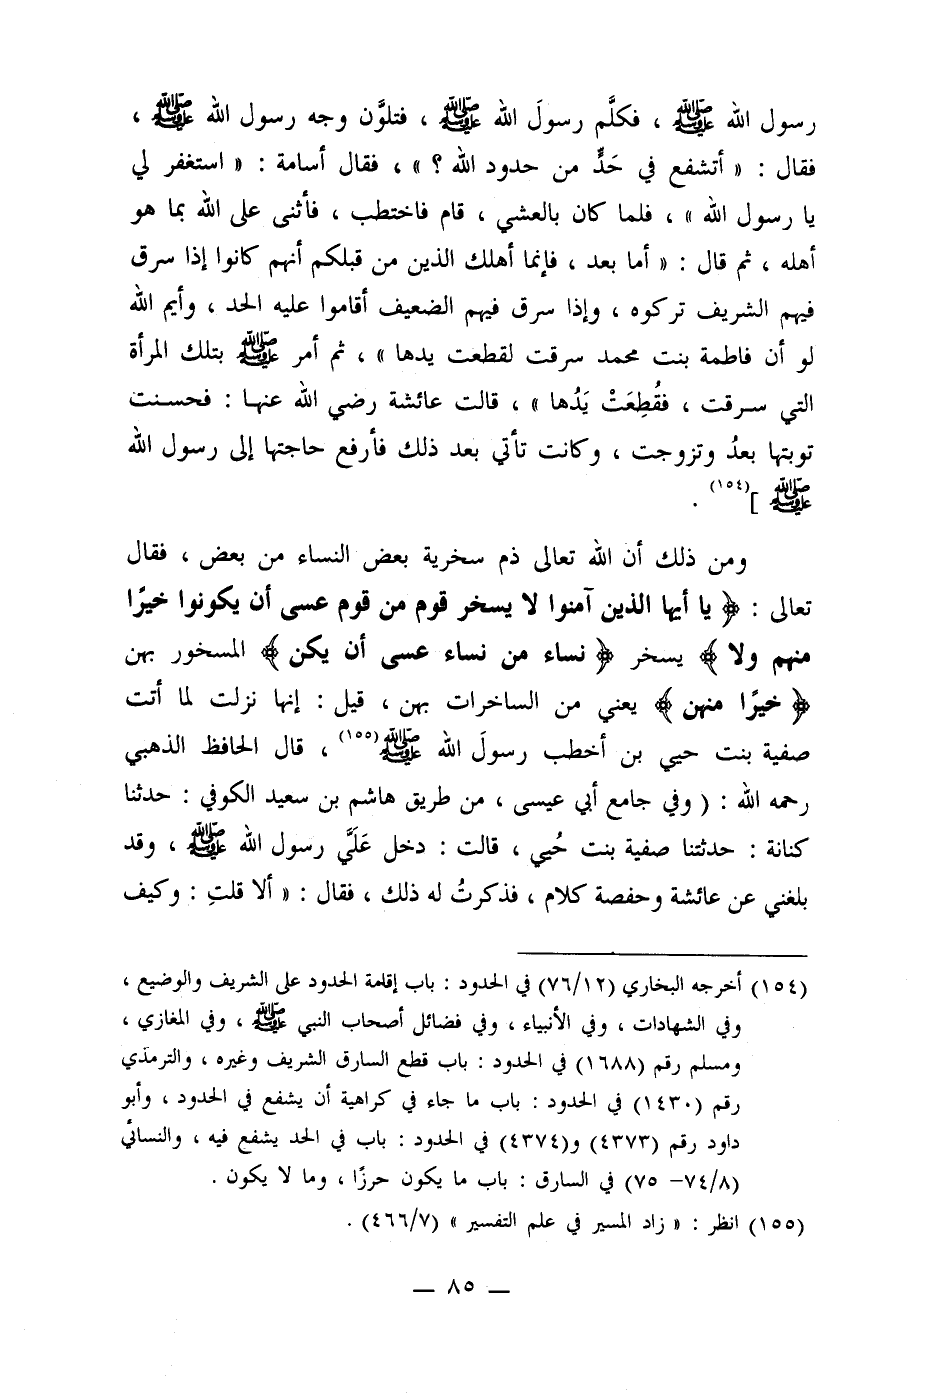 رسول الله ﷺ ، فكلَّم رسولَ الله ﷺ ، فتلوَّن وجه رسول الله ﷺ ،
فقال : « أتشفع في حَدٍّ من حدود الله ؟ » ، فقال أسامة : « استغفر لي
يا رسول الله » ، فلما كان بالعشي ، قام فاختطب ، فأثنى على الله بما هو
أهله ، ثم قال : « أما بعد ، فإنما أهلك الذين من قبلكم أنهم كانوا إذا سرق
فيهم الشريف تركوه ، وإذا سرق فيهم الضعيف أقاموا عليه الحد ، وأيم الله
لو أن فاطمة بنت محمد سرقت لقطعت يدها » ، ثم أمر ﷺ بتلك المرأة
التي سرقت ، فقُطِعَتْ يَدُها » ، قالت عائشة رضي الله عنها : فحسنت
توبتها بعدُ وتزوجت ، وكانت تأتي بعد ذلك فأرفع حاجتها إلى رسول الله
ﷺ ](١٥٤) .
ومن ذلك أن الله تعالى ذم سخرية بعض النساء من بعض ، فقال
تعالى : ﴿ يا أيها الذين آمنوا لا يسخر قوم من قوم عسى أن يكونوا خيرًا
منهم ولا ﴾ يسخر ﴿ نساء من نساء عسى أن يكن ﴾ المسخور بهن
﴿ خيرًا منهن ﴾ يعني من الساخرات بهن ، قيل : إنها نزلت لما أتت
صفية بنت حيي بن أخطب رسولَ الله ﷺ(١٥٥) ، قال الحافظ الذهبي
رحمه الله : ( وفي جامع أبي عيسى ، من طريق هاشم بن سعيد الكوفي : حدثنا
كنانة : حدثتنا صفية بنت حُيي ، قالت : دخل عَلَيَّ رسول الله ﷺ ، وقد
بلغني عن عائشة وحفصة كلام ، فذكرتُ له ذلك ، فقال : « ألا قلتِ : وكيف
(١٥٤) أخرجه البخاري (٧٦/١٢) في الحدود : باب إقامة الحدود على الشريف والوضيع ،
وفي الشهادات ، وفي الأنبياء ، وفي فضائل أصحاب النبي ﷺ ، وفي المغازي ،
ومسلم رقم (١٦٨٨) في الحدود : باب قطع السارق الشريف وغيره ، والترمذي
رقم (١٤٣٠) في الحدود : باب ما جاء في كراهية أن يشفع في الحدود ، وأبو
داود رقم (٤٣٧٣) و(٤٣٧٤) في الحدود : باب في الحد يشفع فيه ، والنسائي
(٧٤/٨– ٧٥) في السارق : باب ما يكون حرزًا ، وما لا يكون .
(١٥٥) انظر : « زاد المسير في علم التفسير » (٤٦٦/٧) .
— ٨٥ —